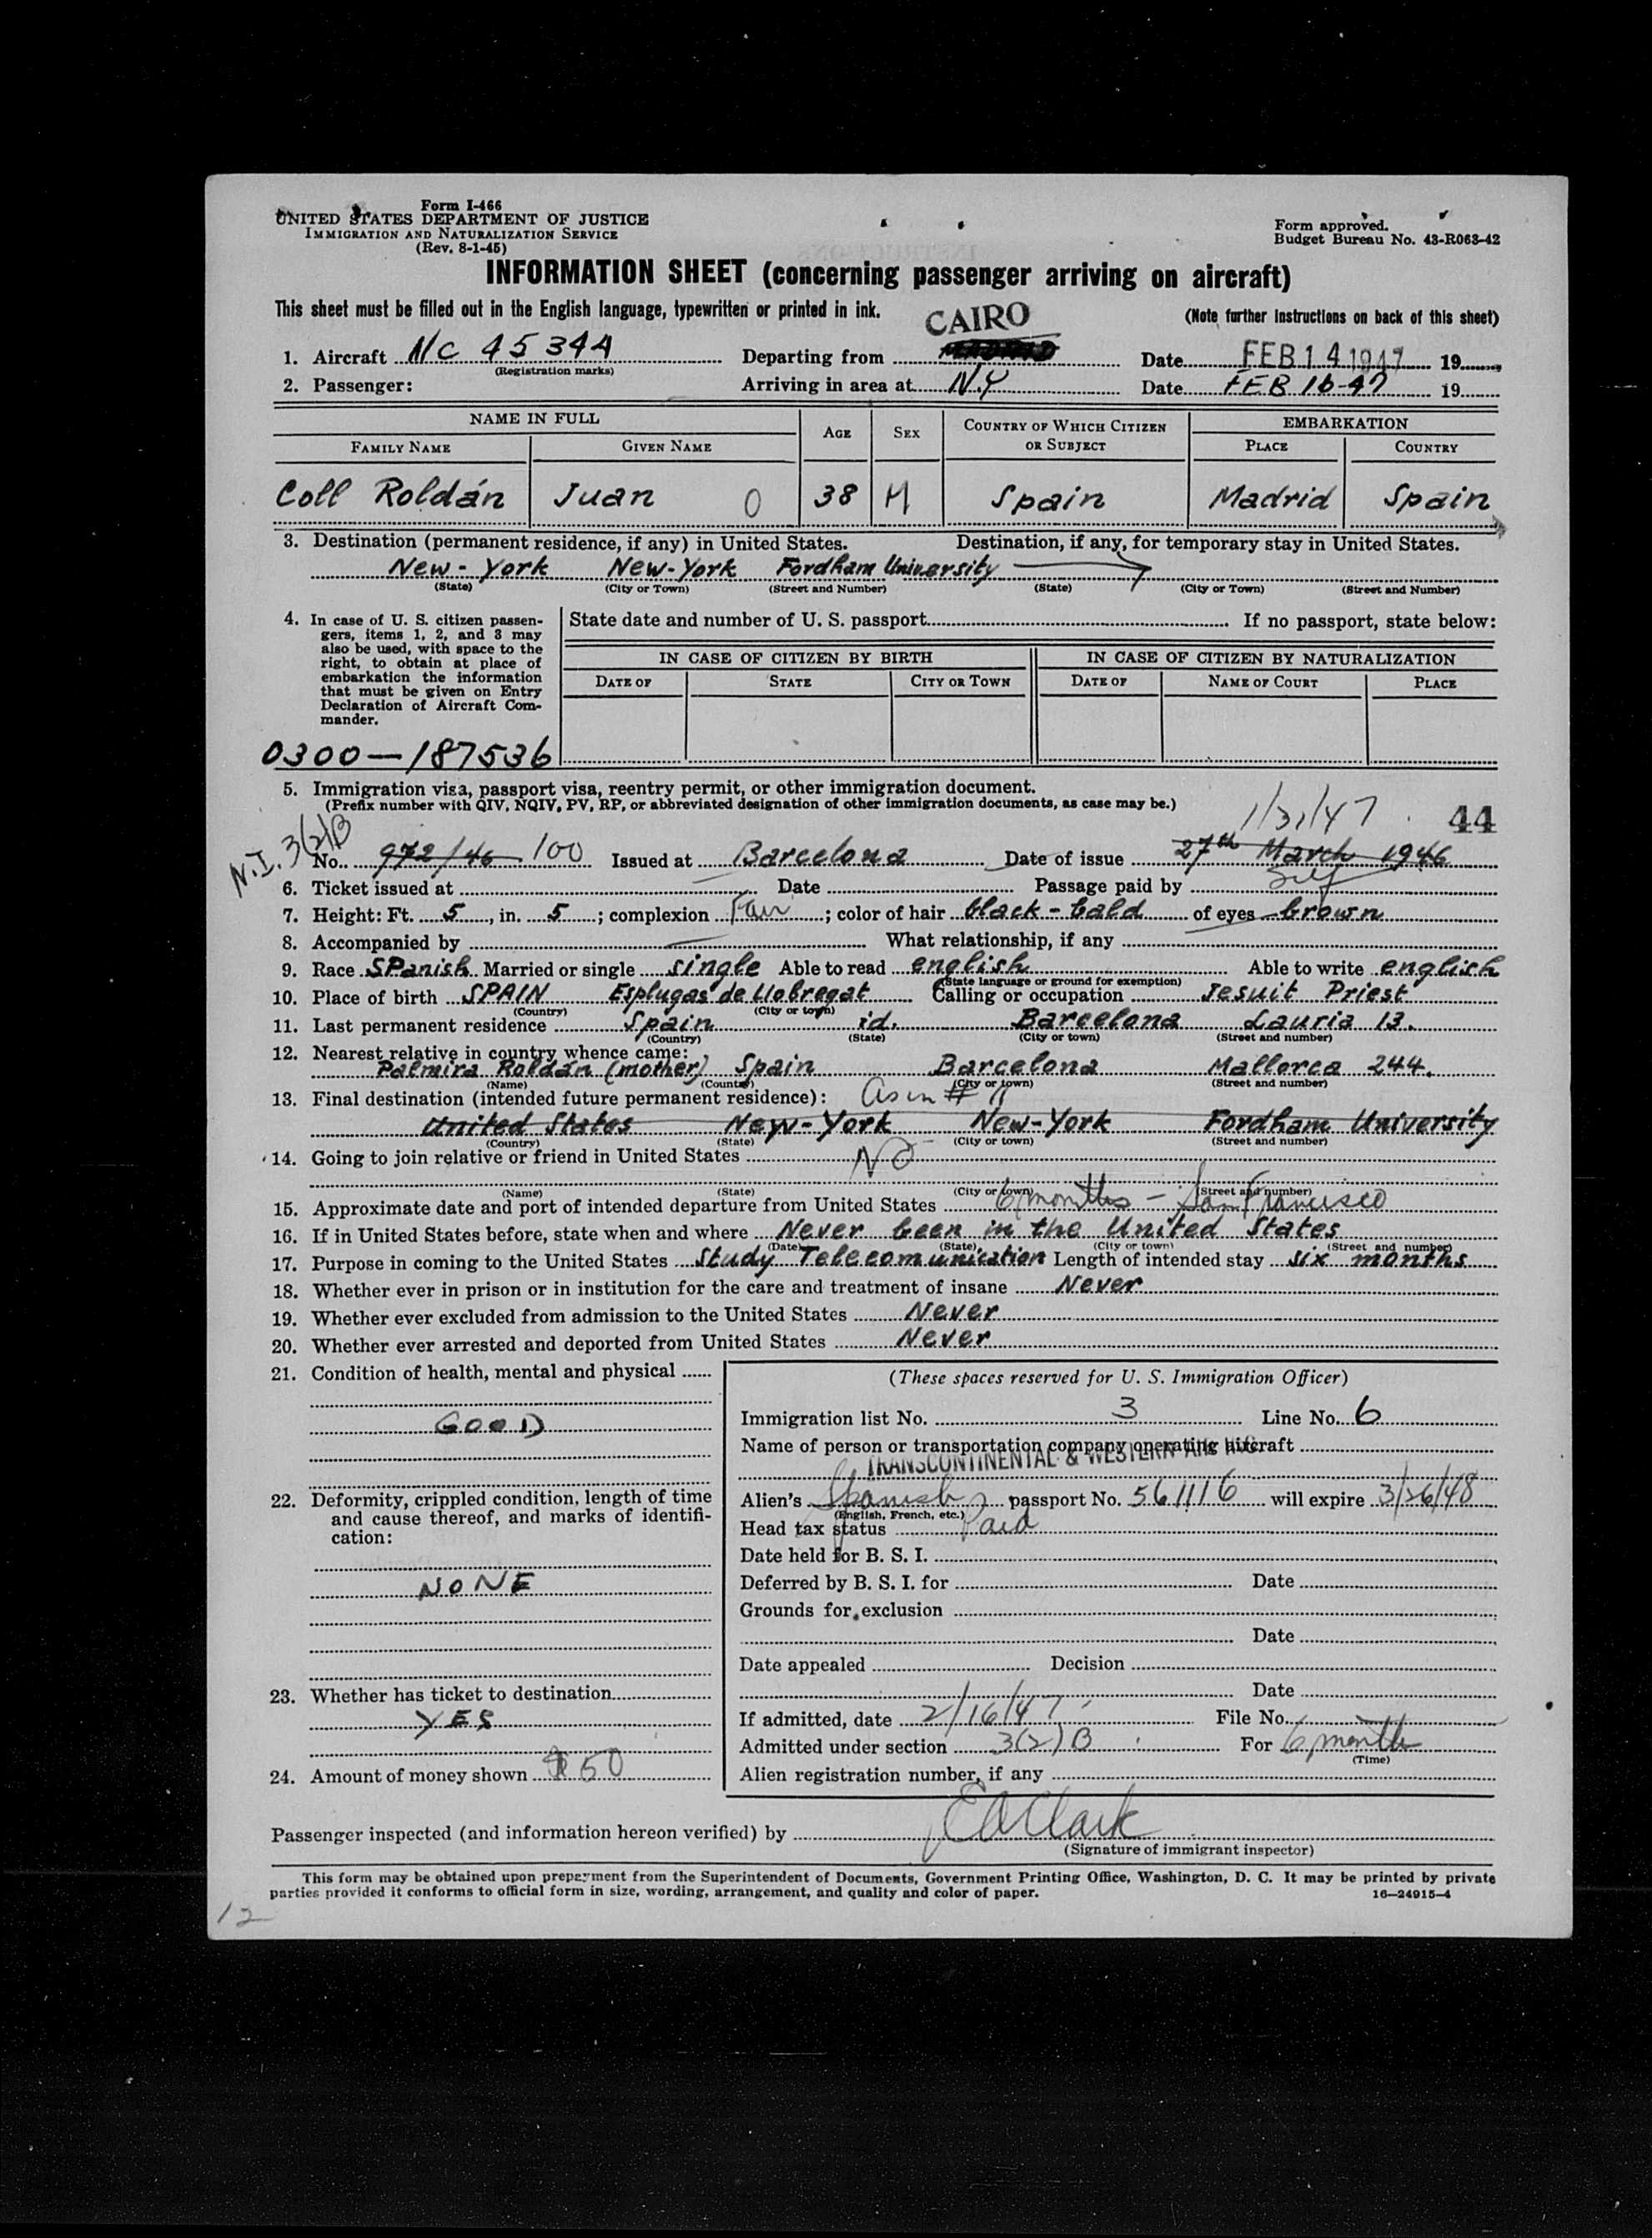 Form I-466
UNITED STATES DEPARTMENT OF JUSTICE
IMMIGRATION AND NATURALIZATION SERVICE
(Rev. 8-1-45)
Form approved.
Budget Bureau No. 43-R063-42
INFORMATION SHEET (concerning passenger arriving on aircraft)
This sheet must be filled out in the English language, typewritten or printed in ink.
(Note further instructions on back of this sheet)
CAIRO
1. Aircraft NC 45344 Departing from MADRID Date FEB 14 1947 19
(Registration marks)
2. Passenger: Arriving in area at N.Y Date FEB 16-47 19
NAME IN FULL AGE SEX COUNTRY OF WHICH CITIZEN OR SUBJECT EMBARKATION
FAMILY NAME GIVEN NAME PLACE COUNTRY
Coll Roldán Juan 0 38 M Spain Madrid Spain
3. Destination (permanent residence, if any) in United States. Destination, if any, for temporary stay in United States.
New-York New-York Fordham University
(State) (City or Town) (Street and Number) (State) (City or Town) (Street and Number)
4. In case of U. S. citizen passengers, items 1, 2, and 3 may also be used, with space to the right, to obtain at place of embarkation the information that must be given on Entry Declaration of Aircraft Commander.
State date and number of U. S. passport If no passport, state below:
IN CASE OF CITIZEN BY BIRTH IN CASE OF CITIZEN BY NATURALIZATION
DATE OF STATE CITY OR TOWN DATE OF NAME OF COURT PLACE
0300-187536
5. Immigration visa, passport visa, reentry permit, or other immigration document.
(Prefix number with QIV, NQIV, PV, RP, or abbreviated designation of other immigration documents, as case may be.)
1/31/47 44
N.I. 3(2)B
No. 972/46 100 Issued at Barcelona Date of issue 27th March 1946
6. Ticket issued at Date Passage paid by Self
7. Height: Ft. 5, in. 5; complexion Fair; color of hair black-bald of eyes brown
8. Accompanied by What relationship, if any
9. Race SPanish Married or single single Able to read english Able to write english
(State language or ground for exemption)
10. Place of birth SPAIN Esplugas de Llobregat Calling or occupation Jesuit Priest
(Country) (City or town)
11. Last permanent residence Spain id. Barcelona Lauria 13.
(Country) (State) (City or town) (Street and number)
12. Nearest relative in country whence came:
Palmira Roldán (mother) Spain Barcelona Mallorca 244.
(Name) (Country) (City or town) (Street and number)
13. Final destination (intended future permanent residence): As in # 11
United States New-York New-York Fordham University
(Country) (State) (City or town) (Street and number)
14. Going to join relative or friend in United States NO
(Name) (State) (City or town) (Street and number)
15. Approximate date and port of intended departure from United States 6 months - San Francisco
16. If in United States before, state when and where Never been in the United States
(Date) (State) (City or town) (Street and number)
17. Purpose in coming to the United States Study Telecomunication Length of intended stay six months
18. Whether ever in prison or in institution for the care and treatment of insane Never
19. Whether ever excluded from admission to the United States Never
20. Whether ever arrested and deported from United States Never
21. Condition of health, mental and physical
GOOD
22. Deformity, crippled condition, length of time and cause thereof, and marks of identification:
NONE
23. Whether has ticket to destination
YES
24. Amount of money shown $50
(These spaces reserved for U. S. Immigration Officer)
Immigration list No. 3 Line No. 6
Name of person or transportation company operating aircraft
TRANSCONTINENTAL & WESTERN AIR INC
Alien's Spanish passport No. 561116 will expire 3/26/48
(English, French, etc.)
Head tax status Paid
Date held for B. S. I.
Deferred by B. S. I. for Date
Grounds for exclusion
Date
Date appealed Decision
Date
If admitted, date 2/16/47 File No.
Admitted under section 3(2)B For 6 month
(Time)
Alien registration number, if any
Passenger inspected (and information hereon verified) by E A Clark
(Signature of immigrant inspector)
This form may be obtained upon prepayment from the Superintendent of Documents, Government Printing Office, Washington, D. C. It may be printed by private
parties provided it conforms to official form in size, wording, arrangement, and quality and color of paper.
16-24915-4
12